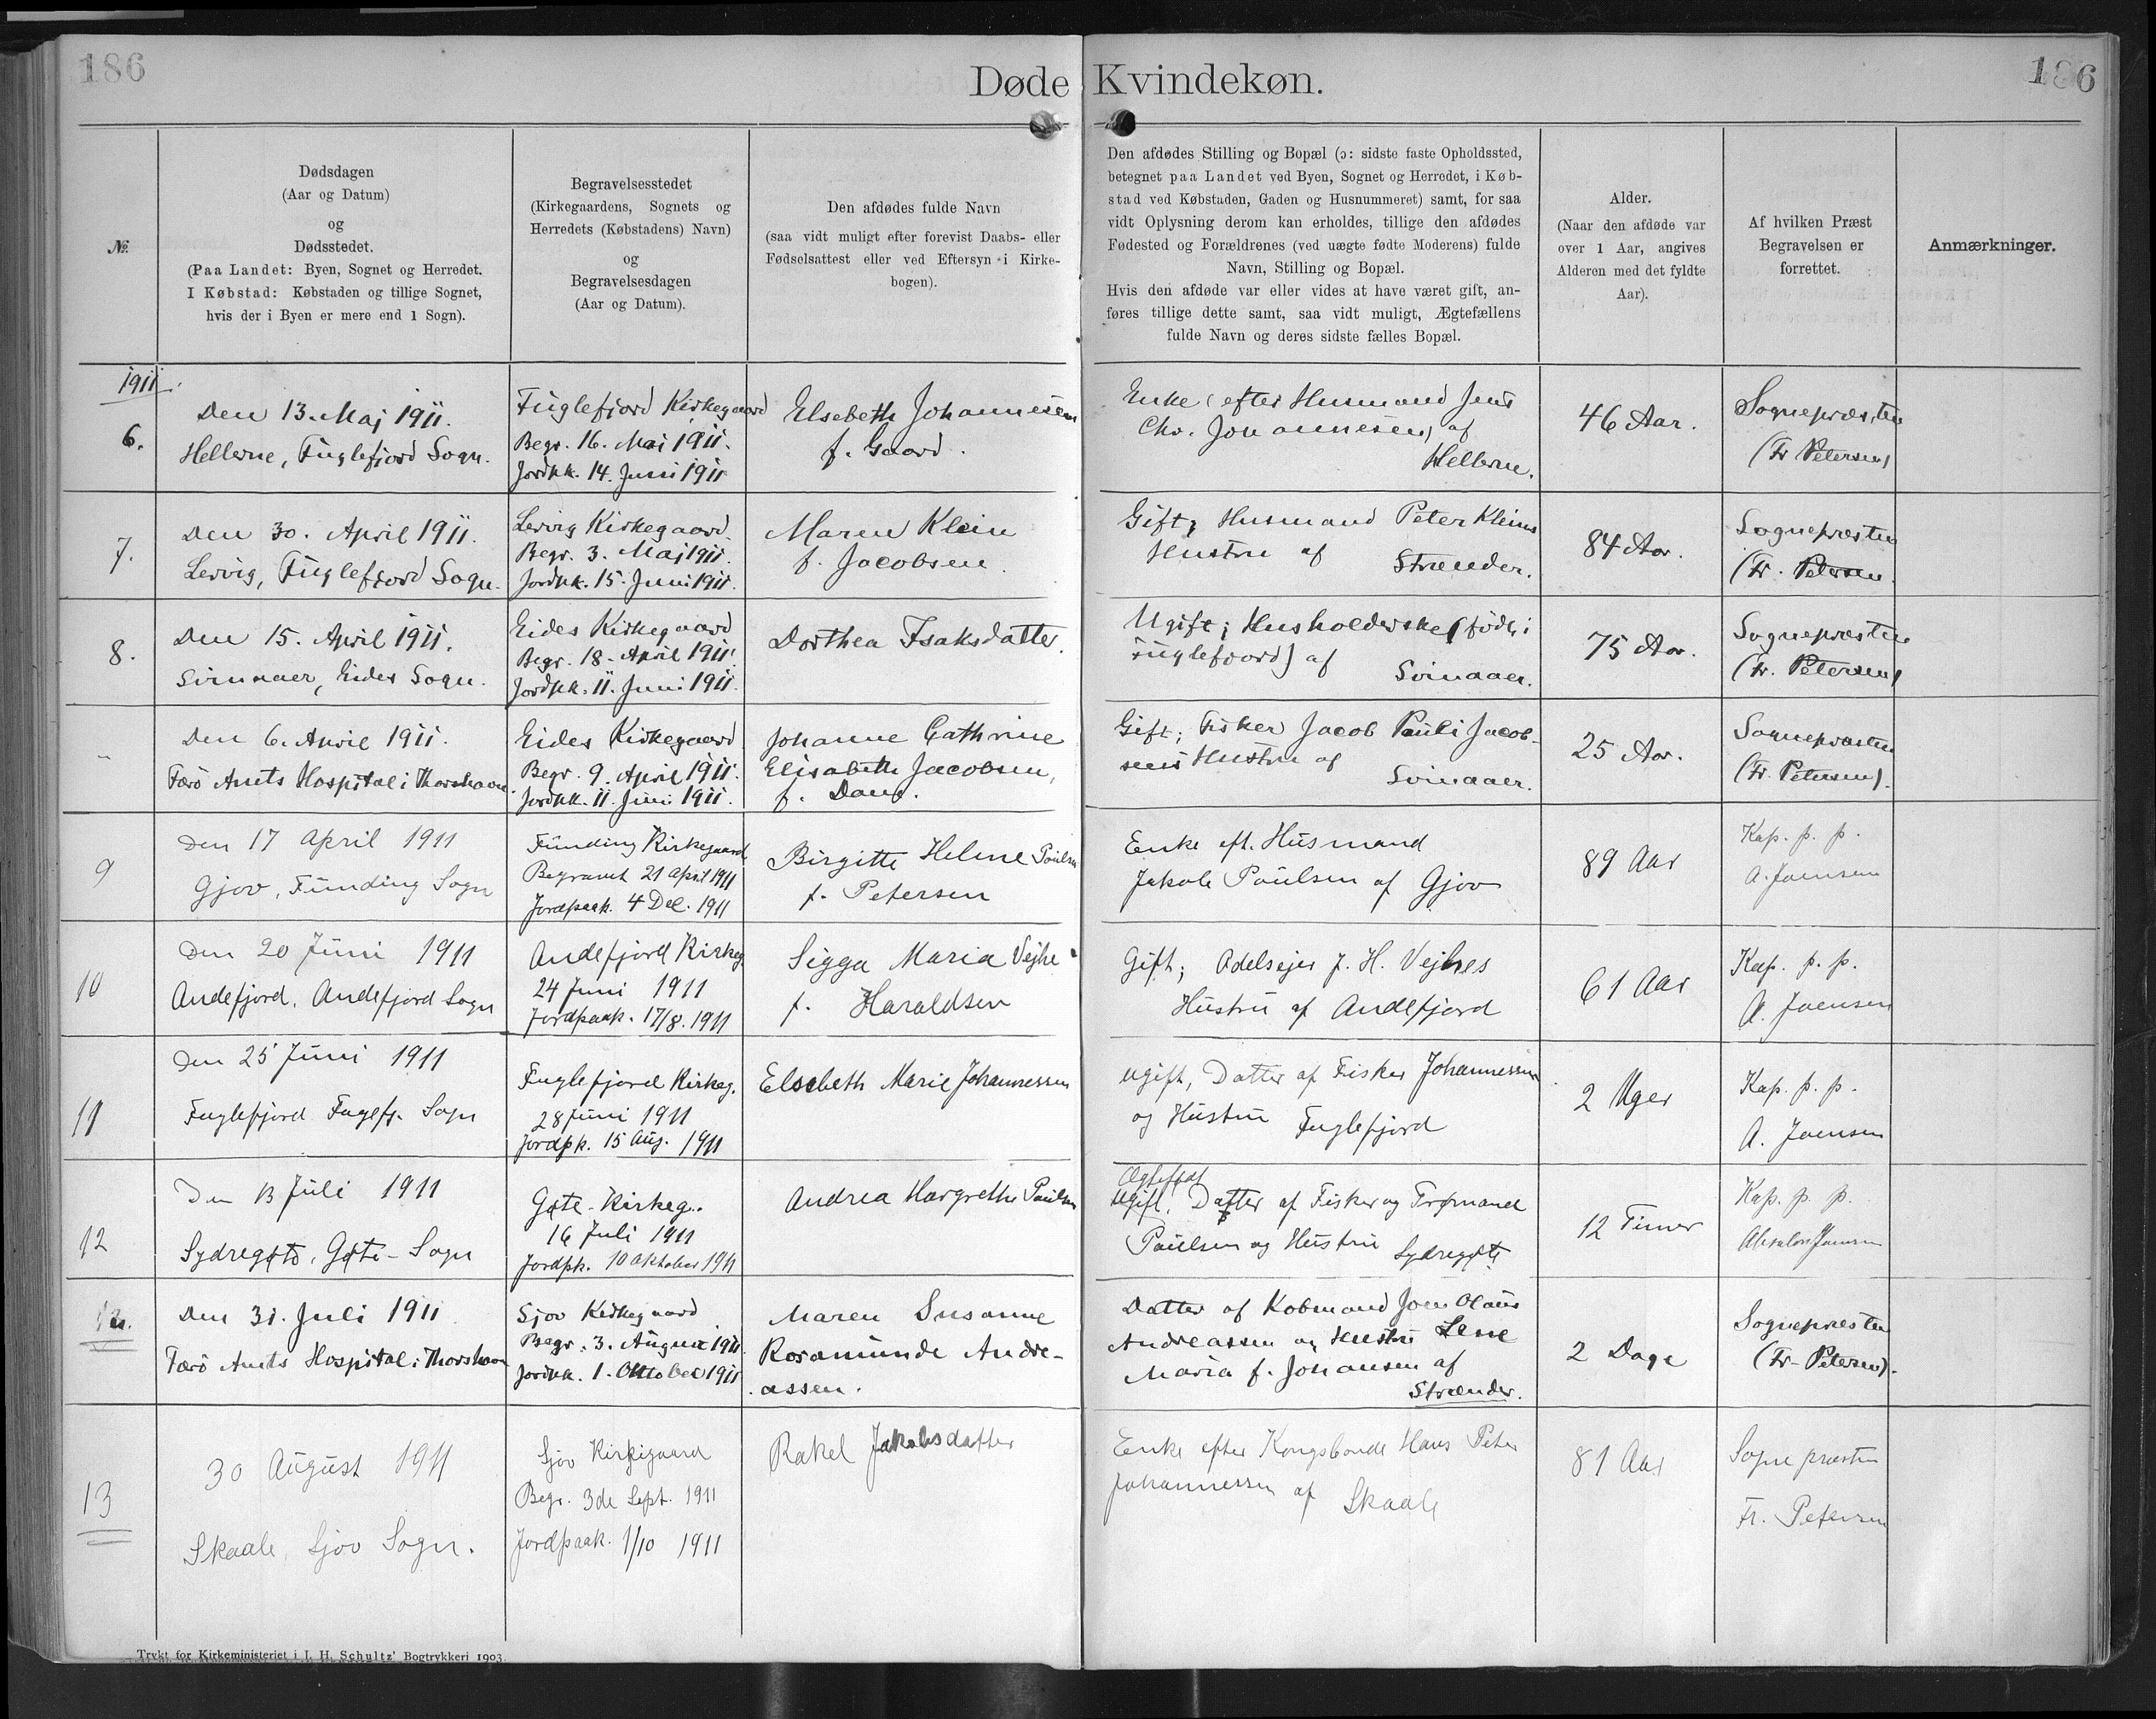 186
186
Døde Kvindekøn.
№
Dødsdagen
(Aar og Datum)
og
Dødsstedet.
(Paa Landet: Byen, Sognet og Herredet.
I Købstad: Købstaden og tillige Sognet,
hvis der i Byen er mere end 1 Sogn).
Begravelsesstedet
(Kirkegaardens, Sognets og
Herredets (Købstadens) Navn)
og
Begravelsesdagen
(Aar og Datum).
Den afdødes fulde Navn
(saa vidt muligt efter forevist Daabs- eller
Fødselsattest eller ved Eftersyn i Kirke-
bogen).
Den afdødes Stilling og Bopæl (ɔ: sidste faste Opholdssted,
betegnet paa Landet ved Byen, Sognet og Herredet, i Køb-
stad ved Købstaden, Gaden og Husnummeret) samt, for saa
vidt Oplysning derom kan erholdes, tillige den afdødes
Fødested og Forældrenes (ved uægte fødte Moderens) fulde
Navn, Stilling og Bopæl.
Hvis den afdøde var eller vides at have været gift, an-
føres tillige dette samt, saa vidt muligt, Ægtefællens
fulde Navn og deres sidste fælles Bopæl.
Alder.
(Naar den afdøde var
over 1 Aar, angives
Alderen med det fyldte
Aar).
Af hvilken Præst
Begravelsen er
forrettet.
Anmærkninger.
1911
6.
Den 13. Maj 1911.
Hellerne, Fuglefjord Sogn.
Fuglefjord Kirkegaard
Begr. 16. Mai 1911.
Jordpk. 14. Juni 1911
Elsebeth Johannesen
f. Gaard.
Enke (efter Husmand Jens
Chr. Johannesen) af
Hellerne.
46 Aar.
Sognepræsten
(Fr Petersen)
7.
Den 30. April 1911.
Lervig, Fuglefjord Sogn.
Lervig Kirkegaard.
Begr. 3. Maj 1911.
Jordpk. 15. Juni 1911.
Maren Klein
f. Jacobsen.
Gift; Husmand Peter Kleins
Hustru af Strænder.
84 Aar.
Sognepræsten
(Fr. Petersen
8.
Den 15. April 1911.
Svinaaer, Eides Sogn.
Eides Kirkegaard
Begr. 18. April 1911.
Jordpk. 11. Juni 1911.
Dorthea Isaksdatter.
Ugift; Husholderske (født i
Fuglefjord) af Svinaaer.
75 Aar.
Sognepræsten
(Fr. Petersen)
-
Den 6. April 1911.
Færö Amts Hospital i Thorshavn.
Eides Kirkegaard
Begr. 9. April 1911.
Jordpk. 11. Juni 1911.
Johanne Cathrine
Elisabeth Jacobsen,
f. Dam.
Gift; Fisker Jacob Pauli Jacob-
sens Hustru af Svinaaer.
25 Aar.
Sognepræsten
(Fr. Petersen).
9
Den 17 April 1911
Gjov, Funding Sogn
Funding Kirkegaard
Begravet 21 April 1911
Jordpaak. 4 Dec. 1911
Birgitte Helene Poulsen
f. Petersen
Enke eft. Husmand
Jakob Poulsen af Gjov
89 Aar
Kap. p. p.
A. Joensen
10
Den 20 Juni 1911
Andefjord, Andefjord Sogn
Andefjord Kirkeg
24 Juni 1911
Jordpaak. 17/8. 1911
Sigga Maria Vejhe
f. Haraldsen
Gift; Odelsejer J. H. Vejhes
Hustru af Andefjord
61 Aar
Kap. p. p.
A. Joensen
11
Den 25 Juni 1911
Fuglefjord Fuglefj. Sogn
Fuglefjord Kirkeg.
28 Juni 1911
Jordpk. 15 Aug. 1911
Elsebeth Marie Johannessen
ugift, Datter af Fisker Johannessen
og Hustru Fuglefjord
2 Uger
Kap. p. p.
A. Joensen
12
Den 13 Juli 1911
Sydregøte, Gøte-Sogn
Gøte-Kirkeg.
16 Juli 1911
Jordpk. 10 Oktober 1911
Andrea Margrethe Poulsen
Ægtefødt
ugift. Datter af Fisker og Trømand
Poulsen og Hustru Sydregøte
12 Timer
Kap. p. p.
Absalon Joensen
Den 31. Juli 1911
Færö Amts Hospital i Thorshavn
Sjov Kirkegaard
Begr. 3. August 1911.
Jordpk. 1. Oktober 1911
Maren Susanne
Rosamunde Andre-
assen.
Datter af Kobmand Joen Olaus
Andreassen og Hustru Lene
Maria f. Johansen af
Strænder.
2 Dage
Sognepræsten
(Fr. Petersen).
13
30 August 1911
Skaale, Sjov Sogn.
Sjov Kirkegaard
Begr. 3de Sept. 1911
Jordpaak. 1/10 1911
Rakel Jakobsdatter
Enke efter Kongsbonde Hans Peter
Johannessen af Skaale
81 Aar
Sognepræsten
Fr. Petersen
Trykt for Kirkeministeriet i J. H. Schultz' Bogtrykkeri 1903.